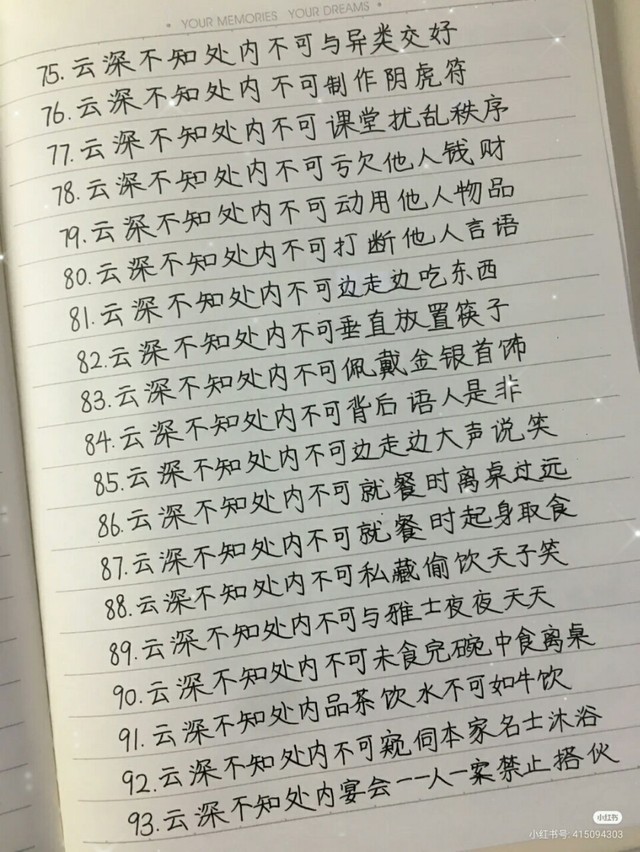 YOUR MEMORIES YOUR DREAMS
75.云深不知处内不可与异类交好
76.云深不知处内不可制作阴虎符
77.云深不知处内不可课堂扰乱秩序
78.云深不知处内不可亏欠他人钱财
79.云深不知处内不可动用他人物品
80.云深不知处内不可打断他人言语
81.云深不知处内不可边走边吃东西
82.云深不知处内不可垂直放置筷子
83.云深不知处内不可佩戴金银首饰
84.云深不知处内不可背后语人是非
85.云深不知处内不可边走边大声说笑
86.云深不知处内不可就餐时离桌过远
87.云深不知处内不可就餐时起身取食
88.云深不知处内不可私藏偷饮天子笑
89.云深不知处内不可与雅士夜夜天天
90.云深不知处内不可未食完碗中食离桌
91.云深不知处内品茶饮水不可如牛饮
92.云深不知处内不可窥伺本家名士沐浴
93.云深不知处内宴会一一人一案禁止搭伙
小红书
小红书号: 415094303